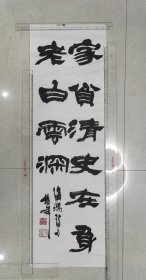 家貧清史在身
老白雲深